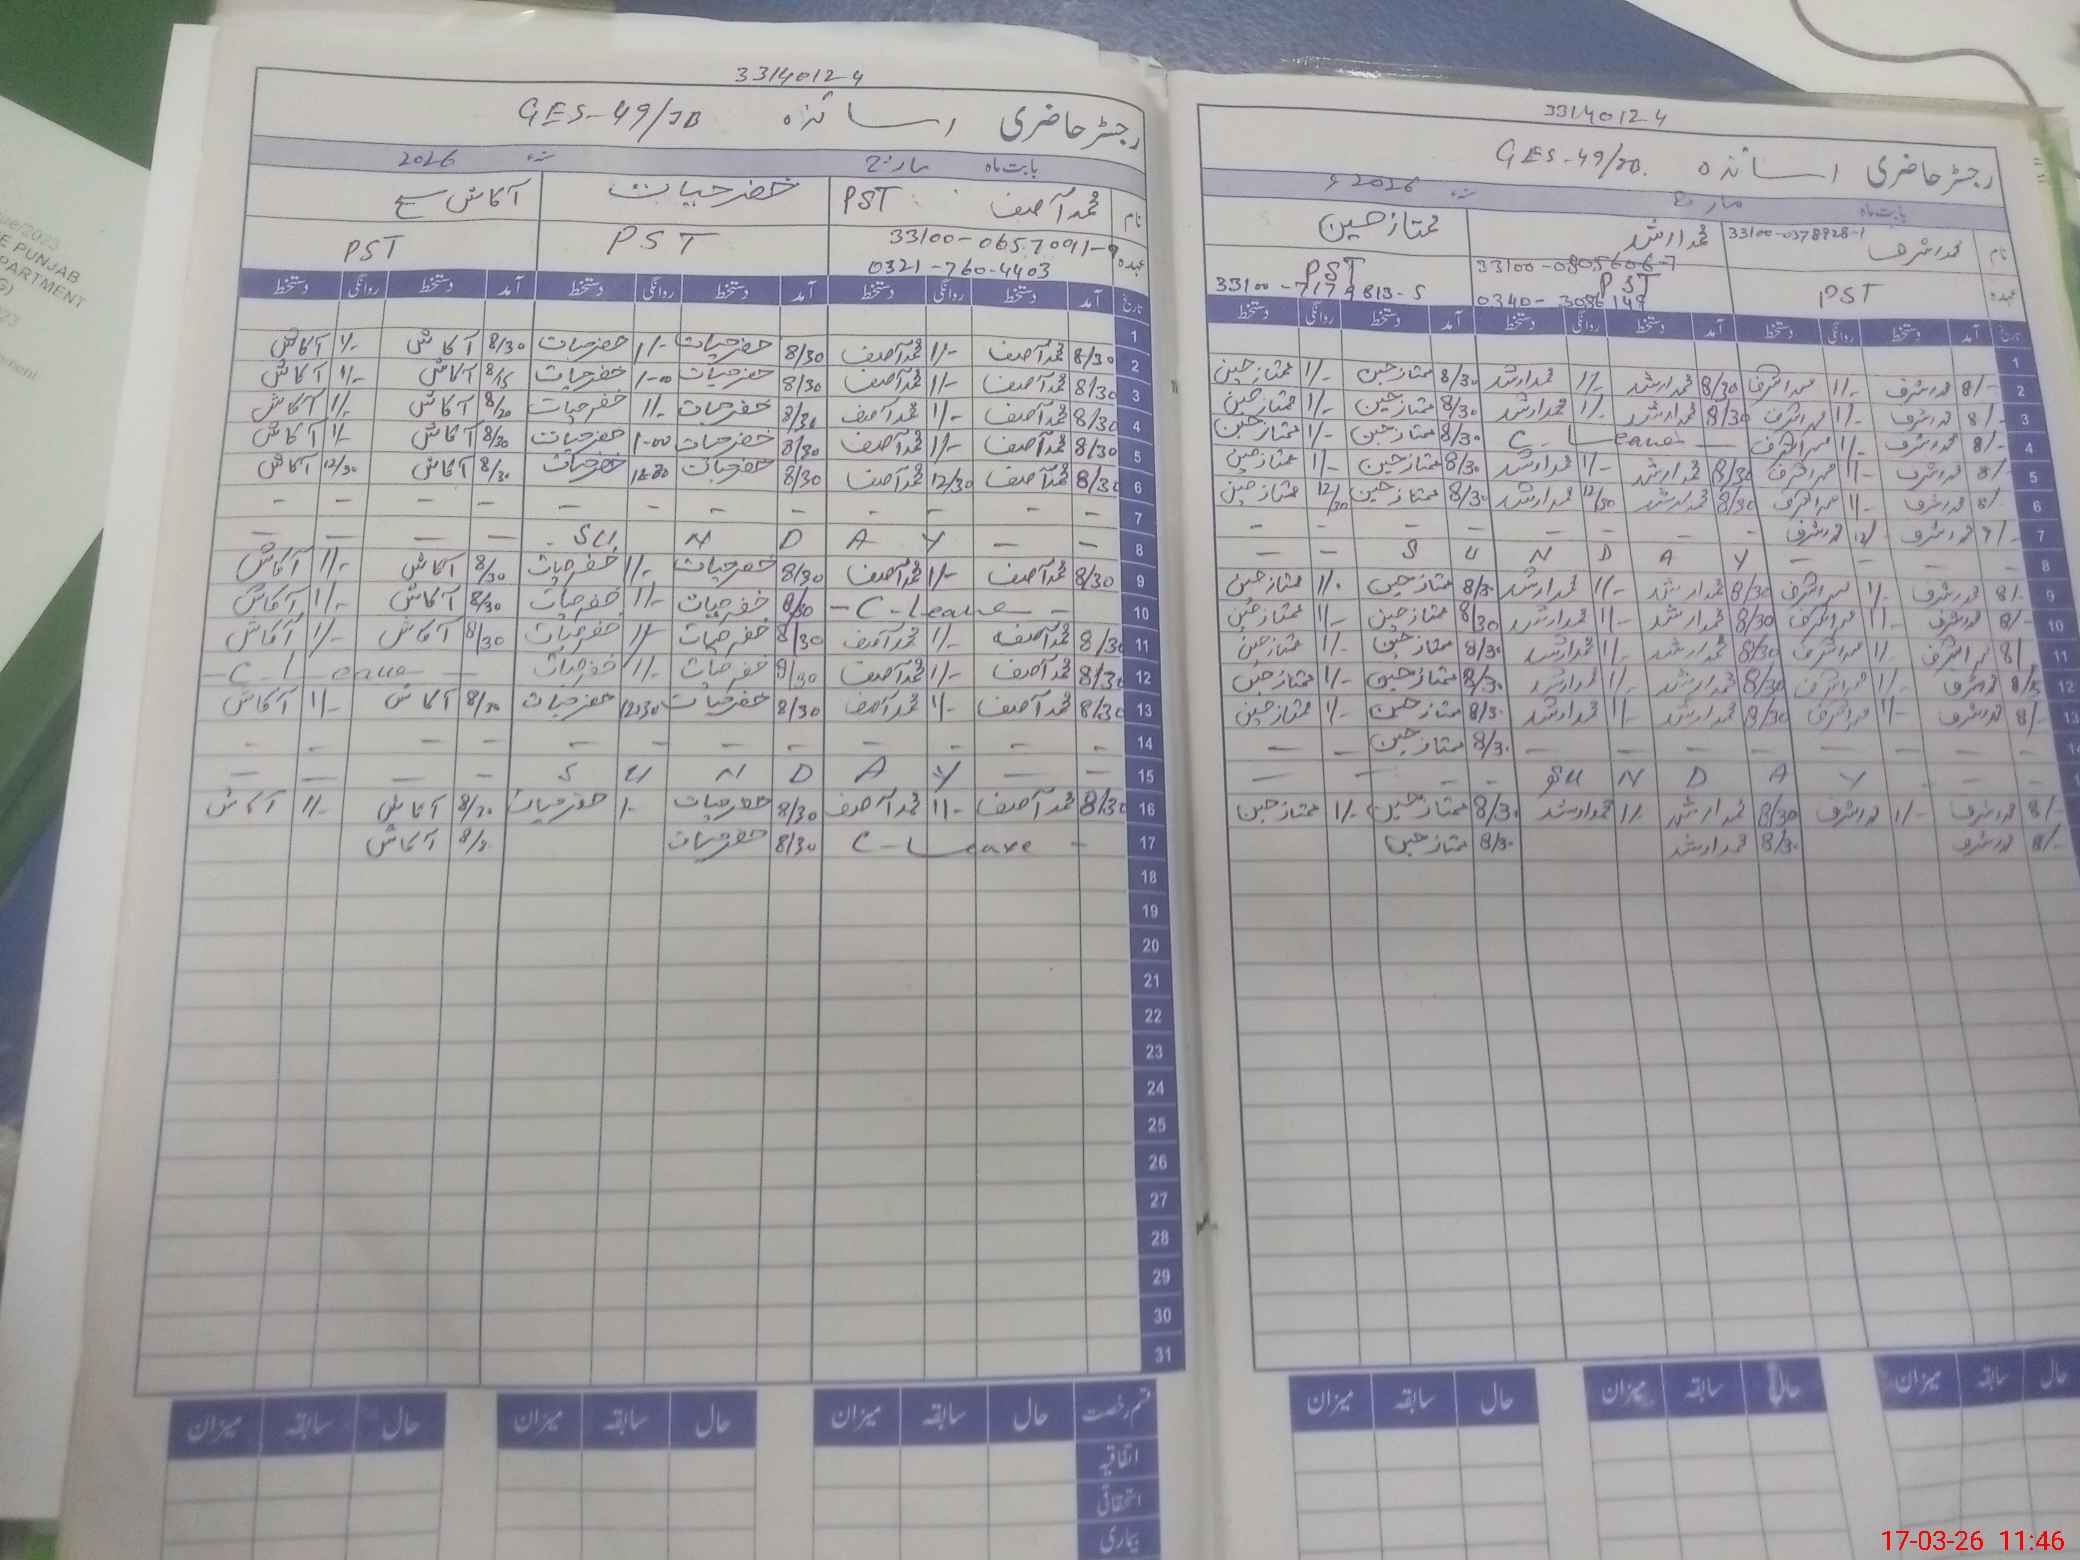 33140124
رجسٹر حاضری اساتذہ GES-49/JB
بابت ماہ مارچ ؁ 2026
نام محمد آصف PST خضر حیات آکاش سیح
عہدہ 33100-0657091-9 PST PST
0321-760-4403
تاریخ آمد دستخط روانگی دستخط آمد دستخط روانگی دستخط آمد دستخط روانگی دستخط
1
2 8/30 محمد آصف 1/- محمد آصف 8/30 خضر حیات 1/- خضر حیات 8/30 آکاش 1/- آکاش
3 8/30 محمد آصف 1/- محمد آصف 8/30 خضر حیات 1-00 خضر حیات 8/15 آکاش 1/- آکاش
4 8/30 محمد آصف 1/- محمد آصف 8/30 خضر حیات 1/- خضر حیات 8/20 آکاش 1/- آکاش
5 8/30 محمد آصف 1/- محمد آصف 8/30 خضر حیات 1-00 خضر حیات 8/30 آکاش 1/- آکاش
6 8/30 محمد آصف 12/30 محمد آصف 8/30 خضر حیات خضر حیات 8/30 آکاش 12/30 آکاش
7 - - - - - - - - - - - -
8 - - Y A D N SU - - - -
9 8/30 محمد آصف 1/- محمد آصف 8/30 خضر حیات 1/- خضر حیات 8/30 آکاش 1/- آکاش
10 - C-Leave - 8/30 خضر حیات 1/- خضر حیات 8/30 آکاش 1/- آکاش
11 8/30 محمد آصف 1/- محمد آصف 8/30 خضر حیات 1/- خضر حیات 8/30 آکاش 1/- آکاش
12 8/30 محمد آصف 1/- محمد آصف 8/30 خضر حیات 1/- خضر حیات - C-Leave -
13 8/30 محمد آصف 1/- محمد آصف 8/30 خضر حیات 12/30 خضر حیات 8/30 آکاش 1/- آکاش
14 - - - - - - - - - - - -
15 - - Y A D N U S - - - -
16 8/30 محمد آصف 1/- محمد آصف 8/30 خضر حیات 1/- خضر حیات 8/30 آکاش 1/- آکاش
17 - C-Leave 8/30 خضر حیات 8/3 آکاش
18
19
20
21
22
23
24
25
26
27
28
29
30
31
قسم رخصت حال سابقہ میزان حال سابقہ میزان حال سابقہ میزان
اتفاقیہ
استحقاقی
بیماری
33140124
رجسٹر حاضری اساتذہ GES-49/JB.
بابت ماہ مارچ ؁ 2026 ء
نام محمد اشرف 33100-0378928-1 محمد ارشد ممتاز حسین
عہدہ PST 33100-0805606-7 PST PST
0340-3086149 33100-7179813-5
تاریخ آمد دستخط روانگی دستخط آمد دستخط روانگی دستخط آمد دستخط روانگی دستخط
1
2 8/- محمد اشرف 1/- محمد اشرف 8/30 محمد ارشد 1/- محمد ارشد 8/30 ممتاز حسین 1/- ممتاز حسین
3 8/- محمد اشرف 1/- محمد اشرف 8/30 محمد ارشد 1/- محمد ارشد 8/30 ممتاز حسین 1/- ممتاز حسین
4 8/- محمد اشرف 1/- محمد اشرف - C-Leave 8/30 ممتاز حسین 1/- ممتاز حسین
5 8/- محمد اشرف 1/- محمد اشرف 8/30 محمد ارشد 1/- محمد ارشد 8/30 ممتاز حسین 1/- ممتاز حسین
6 8/- محمد اشرف 1/- محمد اشرف 8/30 محمد ارشد 12/30 محمد ارشد 8/30 ممتاز حسین 12/30 ممتاز حسین
7 محمد اشرف محمد اشرف - - - - - - - -
8 - - - Y A D N U S - -
9 8/- محمد اشرف 1/- محمد اشرف 8/30 محمد ارشد 1/- محمد ارشد 8/30 ممتاز حسین 1/- ممتاز حسین
10 8/- محمد اشرف 1/- محمد اشرف 8/30 محمد ارشد 1/- محمد ارشد 8/30 ممتاز حسین 1/- ممتاز حسین
11 8/- محمد اشرف 1/- محمد اشرف 8/30 محمد ارشد 1/- محمد ارشد 8/30 ممتاز حسین 1/- ممتاز حسین
12 محمد اشرف 1/- محمد اشرف 8/30 محمد ارشد 1/- محمد ارشد 8/30 ممتاز حسین 1/- ممتاز حسین
13 8/- محمد اشرف 1/- محمد اشرف 8/30 محمد ارشد 1/- محمد ارشد 8/30 ممتاز حسین 1/- ممتاز حسین
- - - - - - - - 8/30 ممتاز حسین - -
- - Y A D N SU - - - -
8/- محمد اشرف 1/- محمد اشرف 8/30 محمد ارشد 1/- محمد ارشد 8/30 ممتاز حسین 1/- ممتاز حسین
8/- محمد اشرف 8/30 محمد ارشد 8/30 ممتاز حسین
حال سابقہ میزان حال سابقہ میزان حال سابقہ میزان
E PUNJAB
PARTMENT
17-03-26 11:46